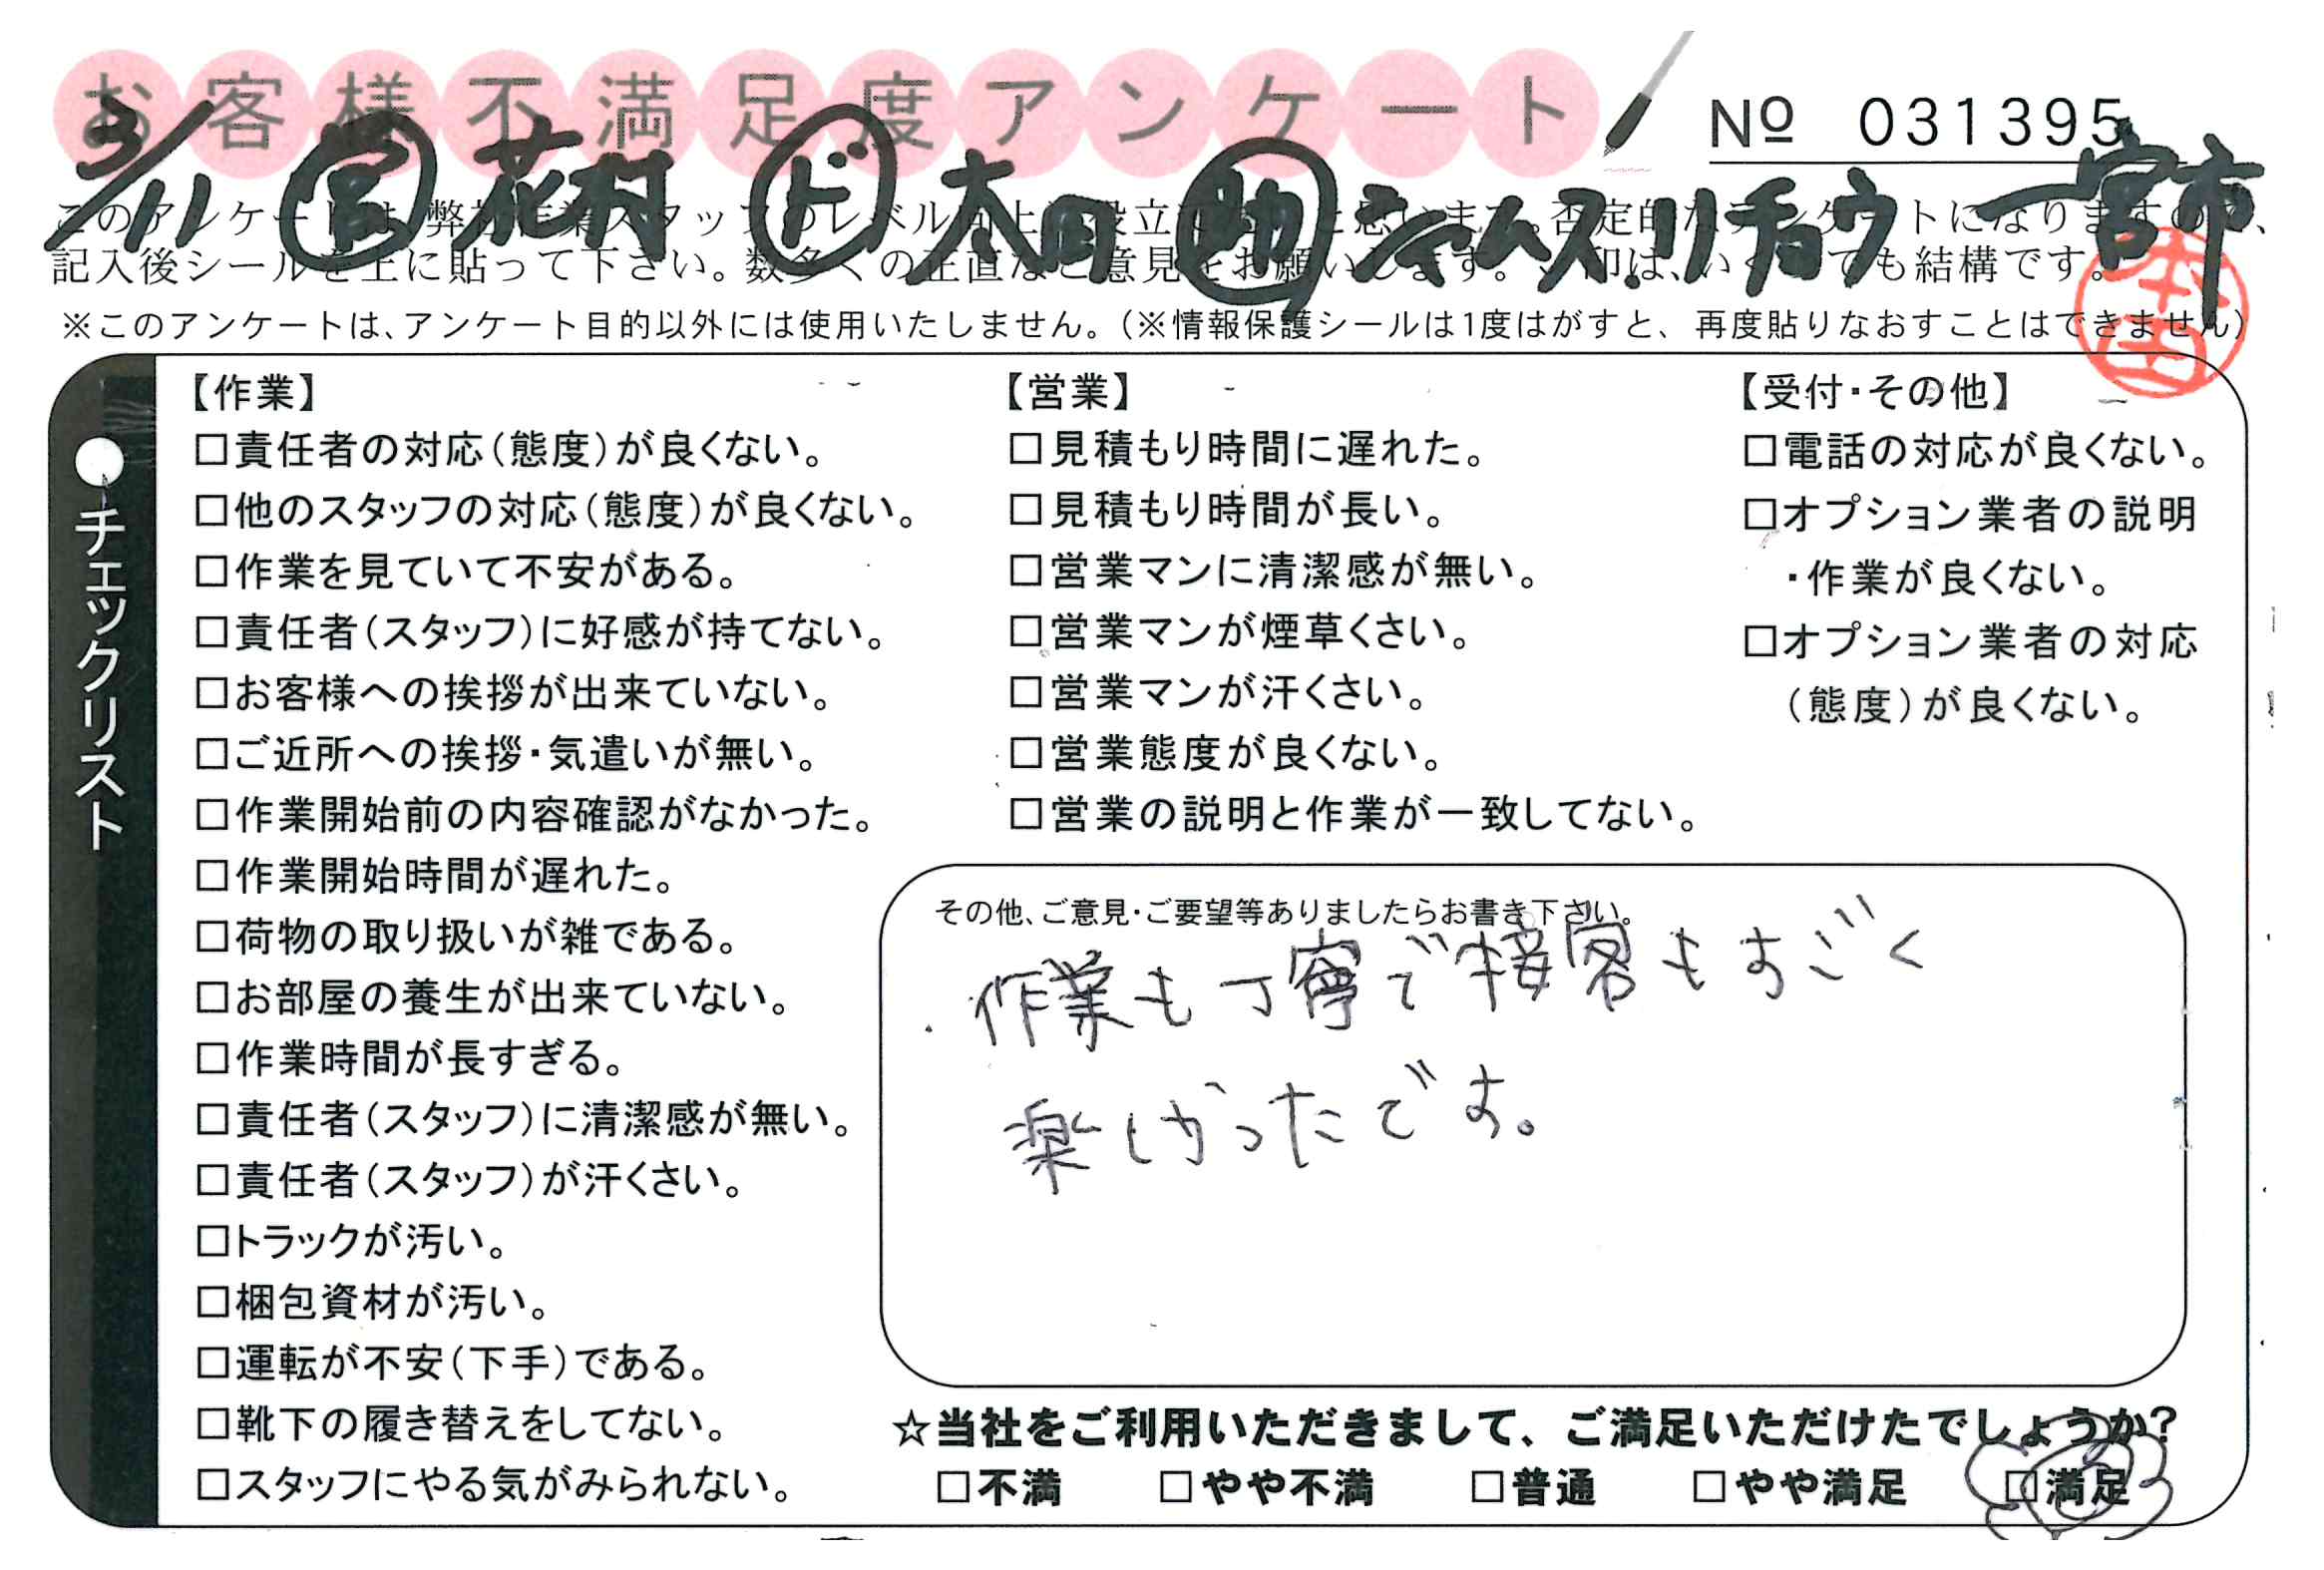 お客様不満足度アンケート
№ 031395
3/11 営 花村 ド 太田 助 シャムス.リチョウ 一宮市
記入後シールを上に貼って下さい。数多くの正直なご意見をお願いします。
※このアンケートは、アンケート目的以外には使用いたしません。（※情報保護シールは1度はがすと、再度貼りなおすことはできません）
本田
●チェックリスト
【作業】
□責任者の対応（態度）が良くない。
□他のスタッフの対応（態度）が良くない。
□作業を見ていて不安がある。
□責任者（スタッフ）に好感が持てない。
□お客様への挨拶が出来ていない。
□ご近所への挨拶・気遣いが無い。
□作業開始前の内容確認がなかった。
□作業開始時間が遅れた。
□荷物の取り扱いが雑である。
□お部屋の養生が出来ていない。
□作業時間が長すぎる。
□責任者（スタッフ）に清潔感が無い。
□責任者（スタッフ）が汗くさい。
□トラックが汚い。
□梱包資材が汚い。
□運転が不安（下手）である。
□靴下の履き替えをしてない。
□スタッフにやる気がみられない。
【営業】
□見積もり時間に遅れた。
□見積もり時間が長い。
□営業マンに清潔感が無い。
□営業マンが煙草くさい。
□営業マンが汗くさい。
□営業態度が良くない。
□営業の説明と作業が一致してない。
【受付・その他】
□電話の対応が良くない。
□オプション業者の説明
・作業が良くない。
□オプション業者の対応
（態度）が良くない。
その他、ご意見・ご要望等ありましたらお書き下さい。
・作業も丁寧で接客もすごく
楽しかったです。
☆当社をご利用いただきまして、ご満足いただけたでしょうか?
□不満 □やや不満 □普通 □やや満足 □満足